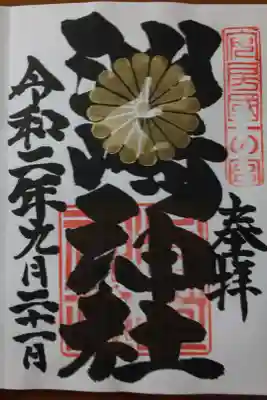 安房國一の宮
奉拝
洲崎神社
令和二年九月二十一日